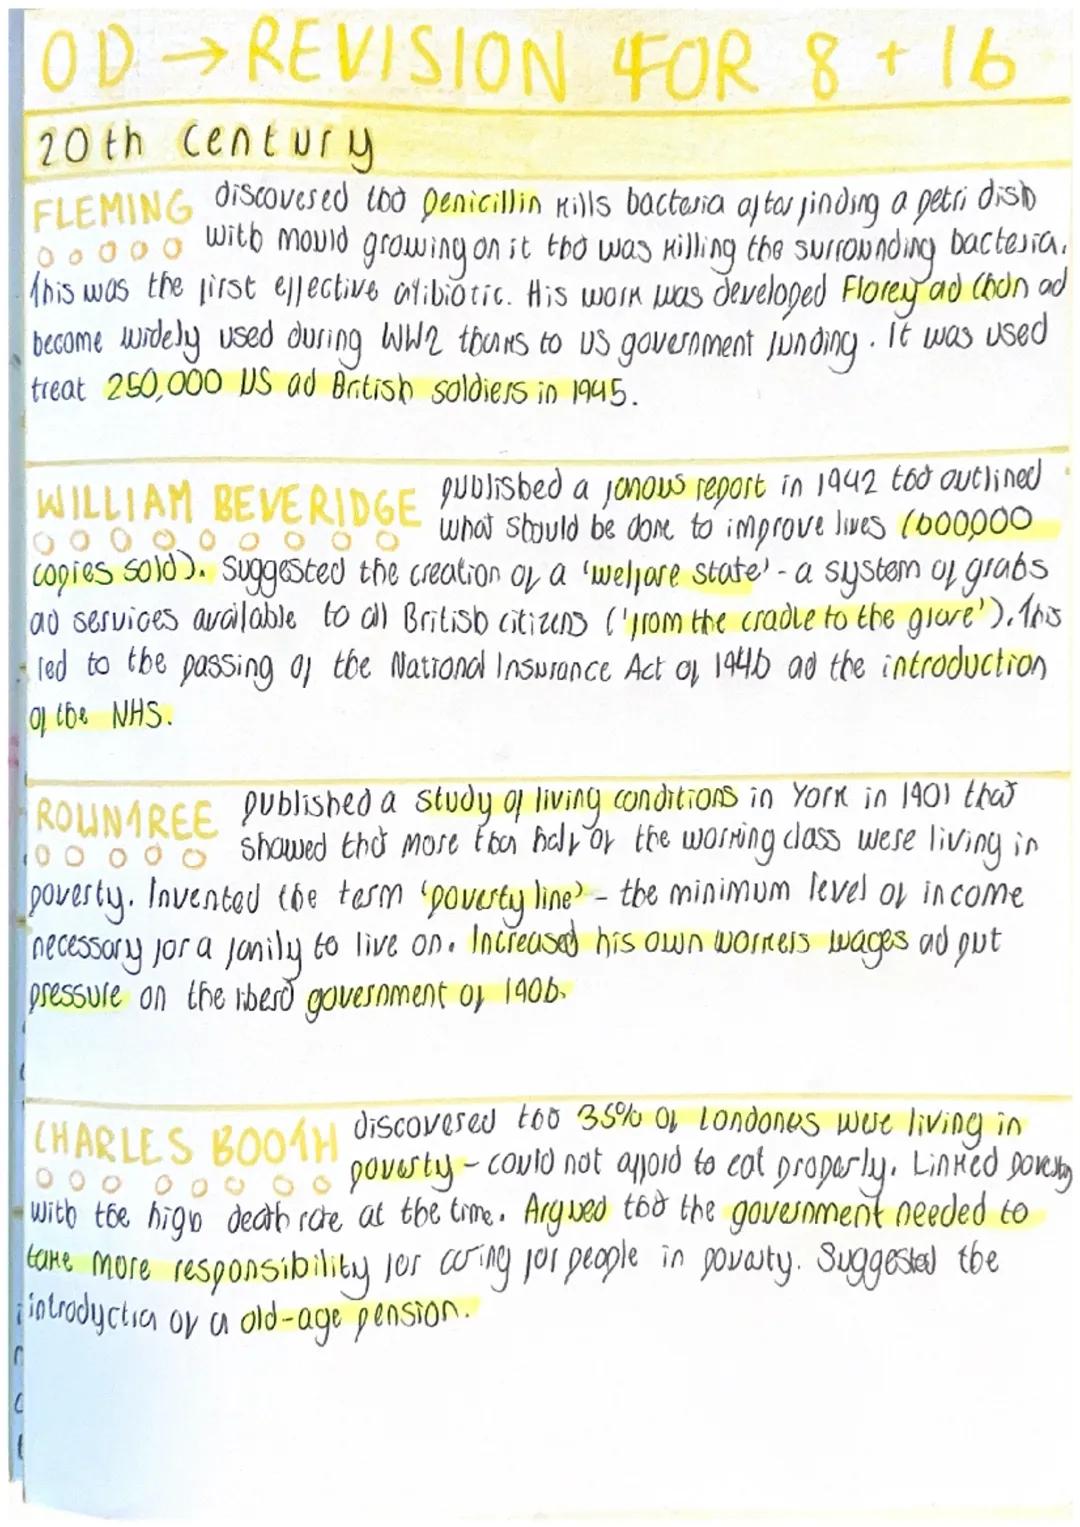 OD → REVISION FOR 8 + 16
20th Century
FLEMING discovered that penicillin kills bacteria after finding a petri dish
with mould growing on it that was killing the surrounding bacteria.
This was the first effective antibiotic. His work was developed Florey and Chain and
become widely used during WW2 thanks to US government funding. It was used
treat 250,000 US and British soldiers in 1945.
WILLIAM BEVERIDGE published a famous report in 1942 that outlined
what should be done to improve lives (600,000
copies sold). Suggested the creation of a 'welfare state' - a system of grabs
and services available to all British citizens ('from the cradle to the grave'). This
led to the passing of the National Insurance Act of 1946 and the introduction
of the NHS.
ROWNTREE published a study of living conditions in York in 1901 that
showed that more than half of the working class were living in
poverty. Invented the term 'poverty line' - the minimum level of income
necessary for a family to live on. Increased his own workers wages and put
pressure on the liberal government of 1906.
CHARLES BOOTH discovered that 35% of Londones were living in
poverty - could not afford to eat properly. Linked poverty
with the high death rate at the time. Argued that the government needed to
take more responsibility for caring for people in poverty. Suggested the
introduction of a old-age pension.